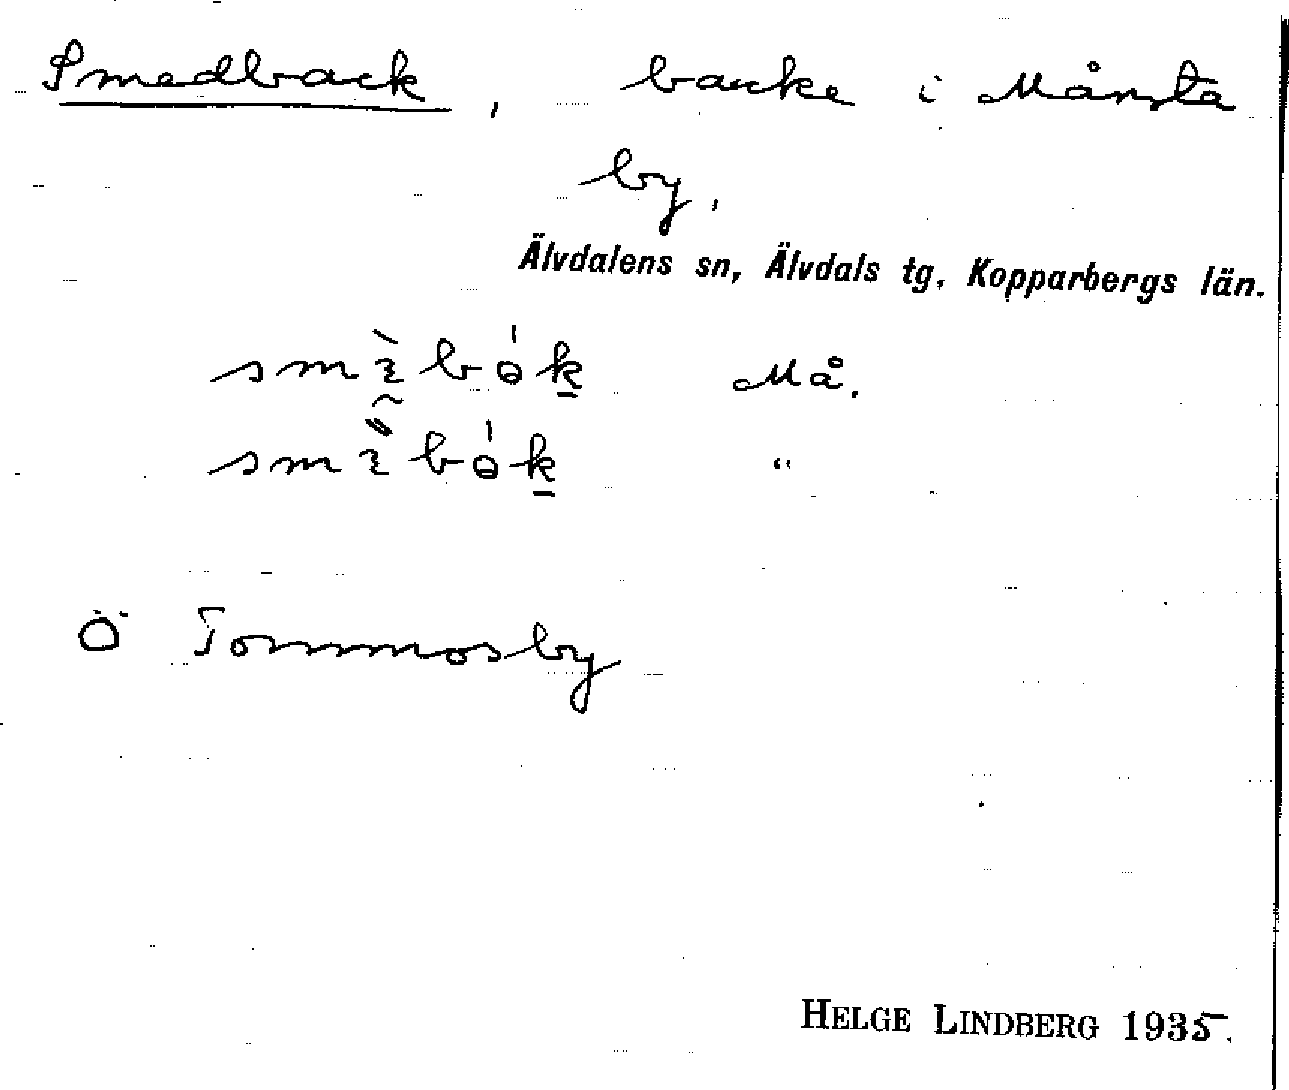 Smedback, backe i Månsta
by,
Älvdalens sn, Älvdals tg, Kopparbergs län.
Må.
"
Ö Tommosby
HELGE LINDBERG 1935.